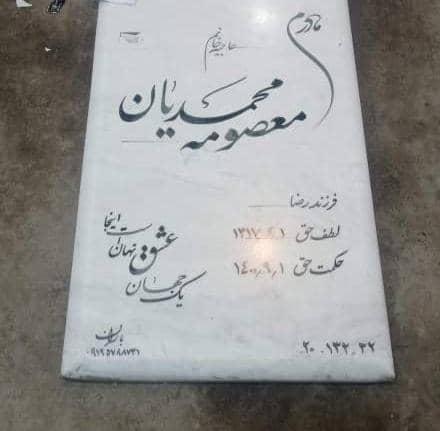 مادرم
حاجیه خانم
معصومه محمدیان
فرزند رضا
لطف حق ۱۳۱۷٫۶٫۱
حکمت حق ۱۴۰۰٫۹٫۱
یک جهان عشق نهان است اینجا
۲۰ . ۱۳۲ . ۳۲
۰۹۱۹۵۷۹۸۷۳۱